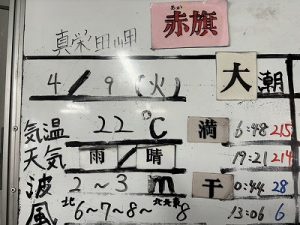 真栄田岬
あか
赤旗
4/9(火)
大潮
気温 22℃
満 6:48 215
天気 雨/晴
19:21 214
波 2~3m
干 0:44 28
風 北6~7~8~北北東8
13:06 6